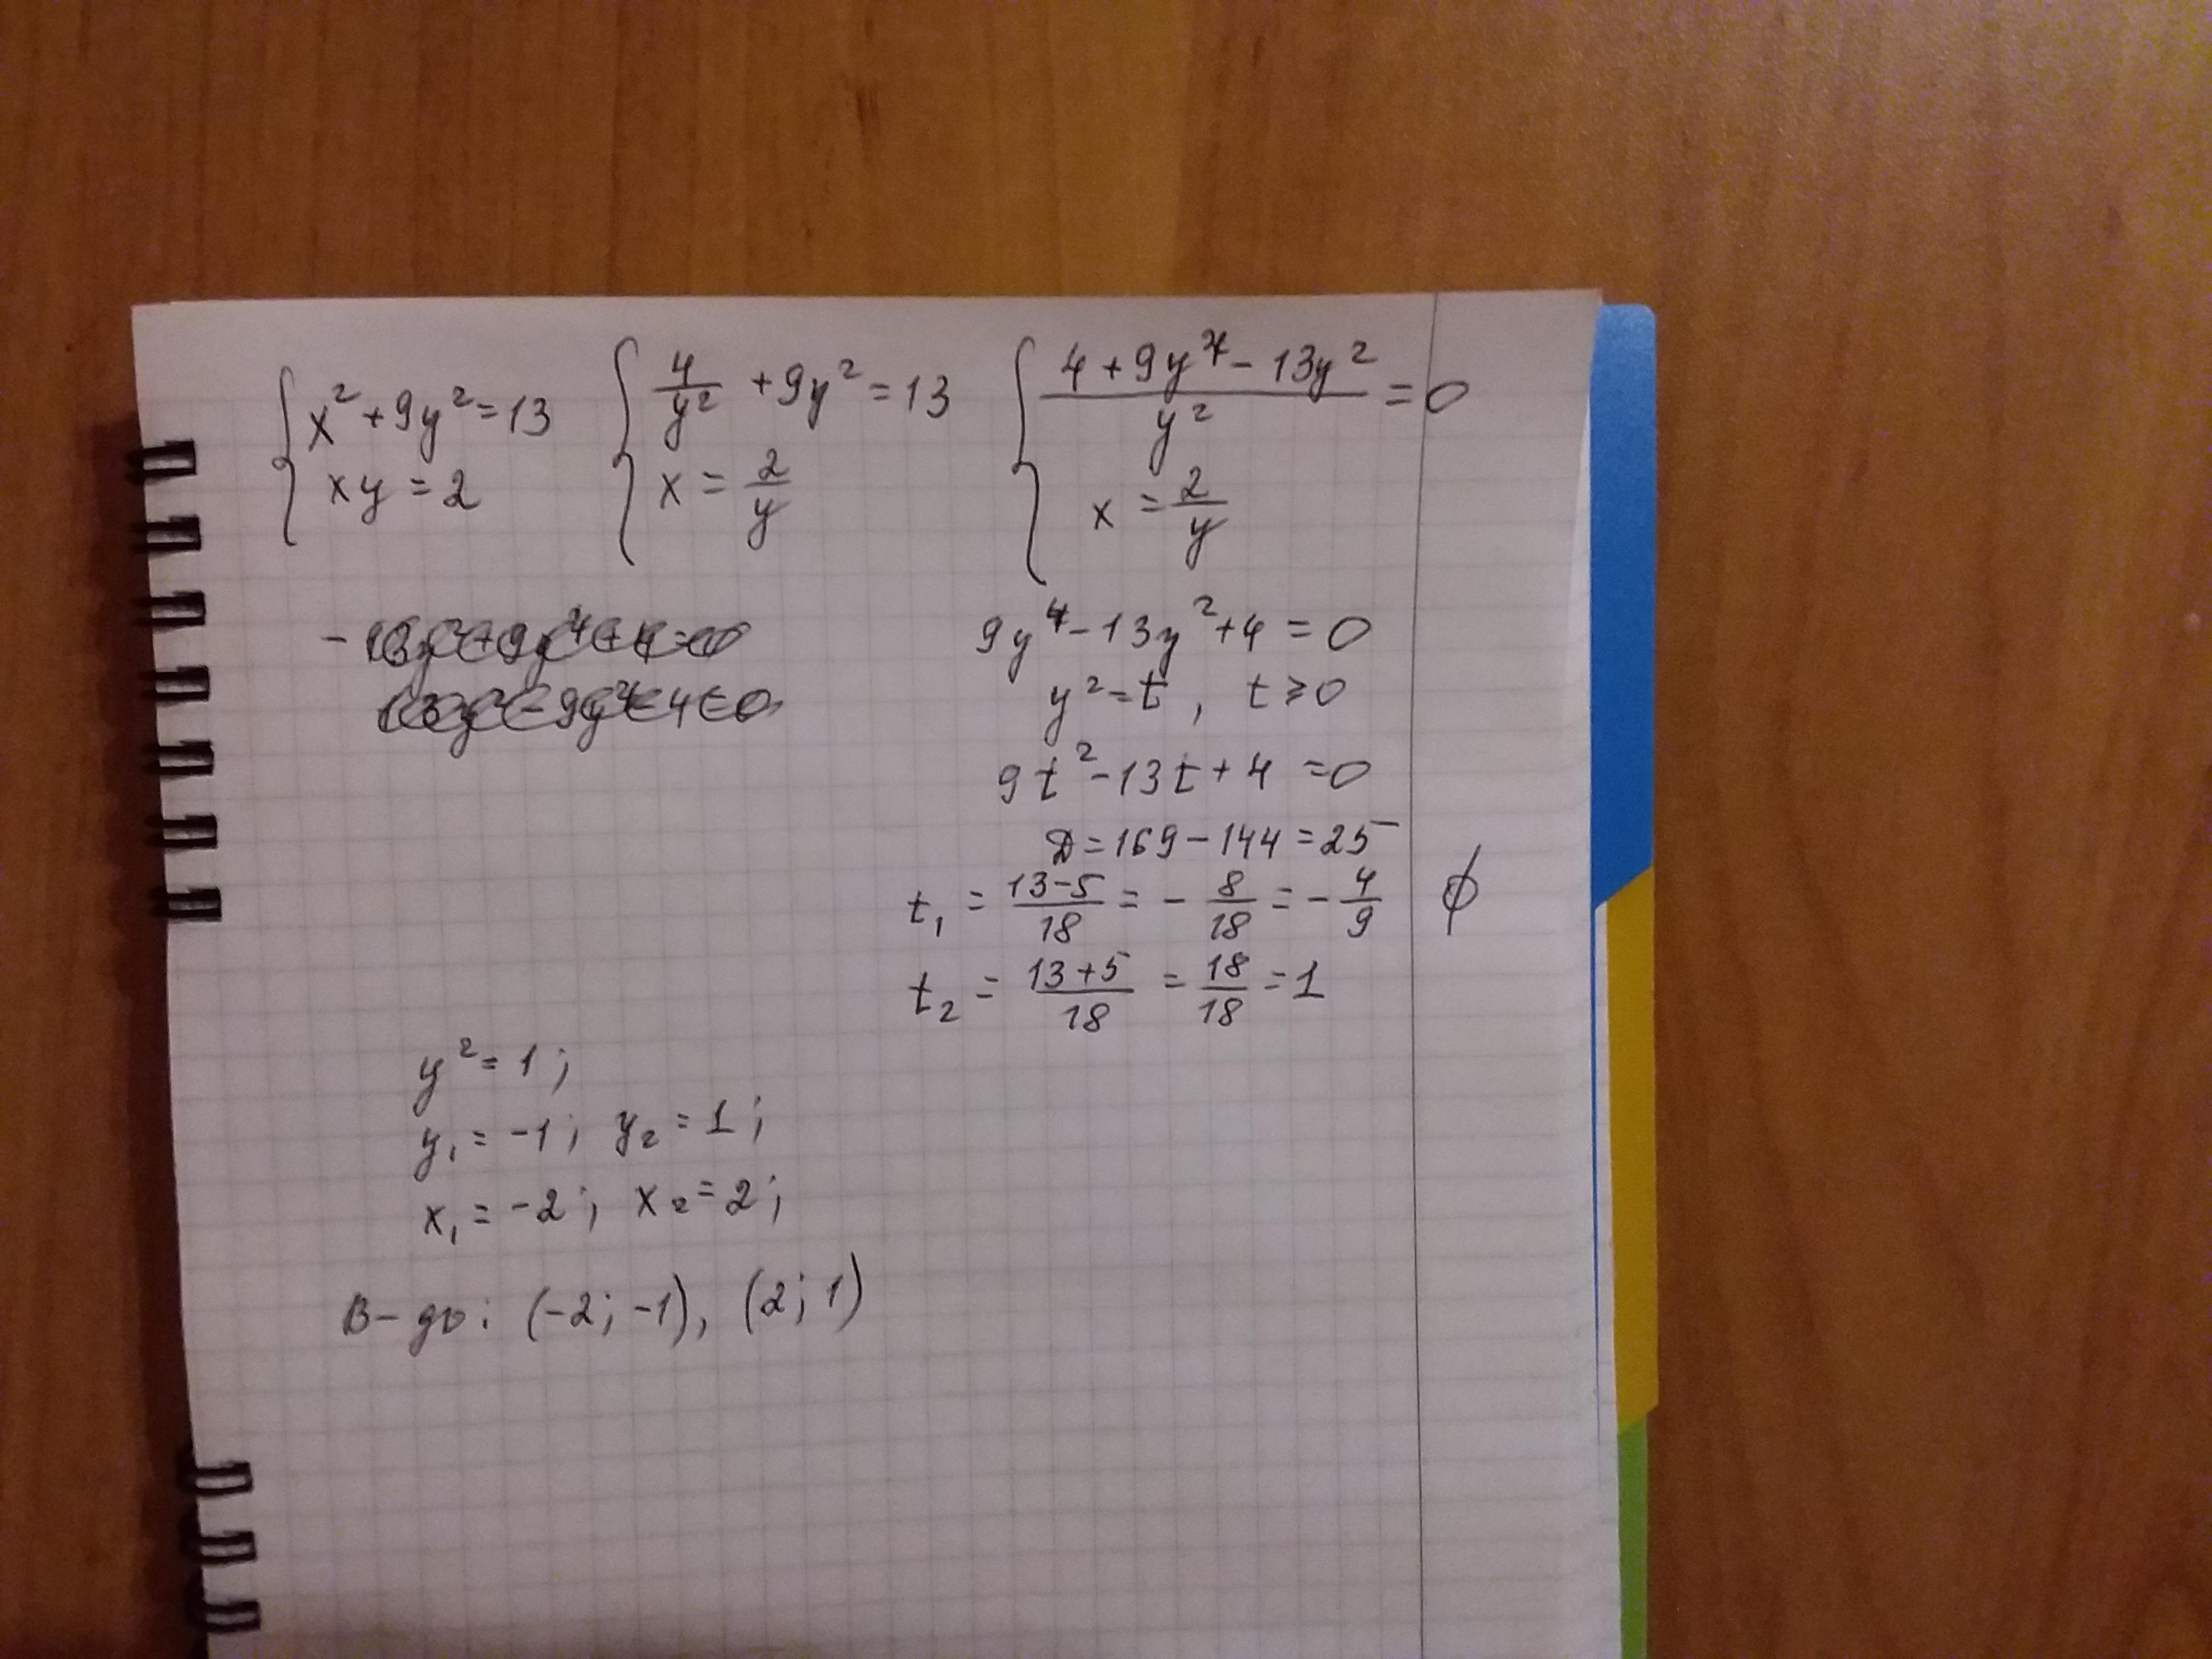 { x² + 9y² = 13 { 4/y² + 9y² = 13 { (4 + 9y⁴ - 13y²)/y² = 0
xy = 2 x = 2/y x = 2/y
9y⁴ - 13y² + 4 = 0
y² = t, t ≥ 0
9t² - 13t + 4 = 0
D = 169 - 144 = 25
t₁ = (13-5)/18 = - 8/18 = - 4/9 ∅
t₂ = (13+5)/18 = 18/18 = 1
y² = 1;
y₁ = -1; y₂ = 1;
x₁ = -2; x₂ = 2;
В-дь: (-2; -1), (2; 1)